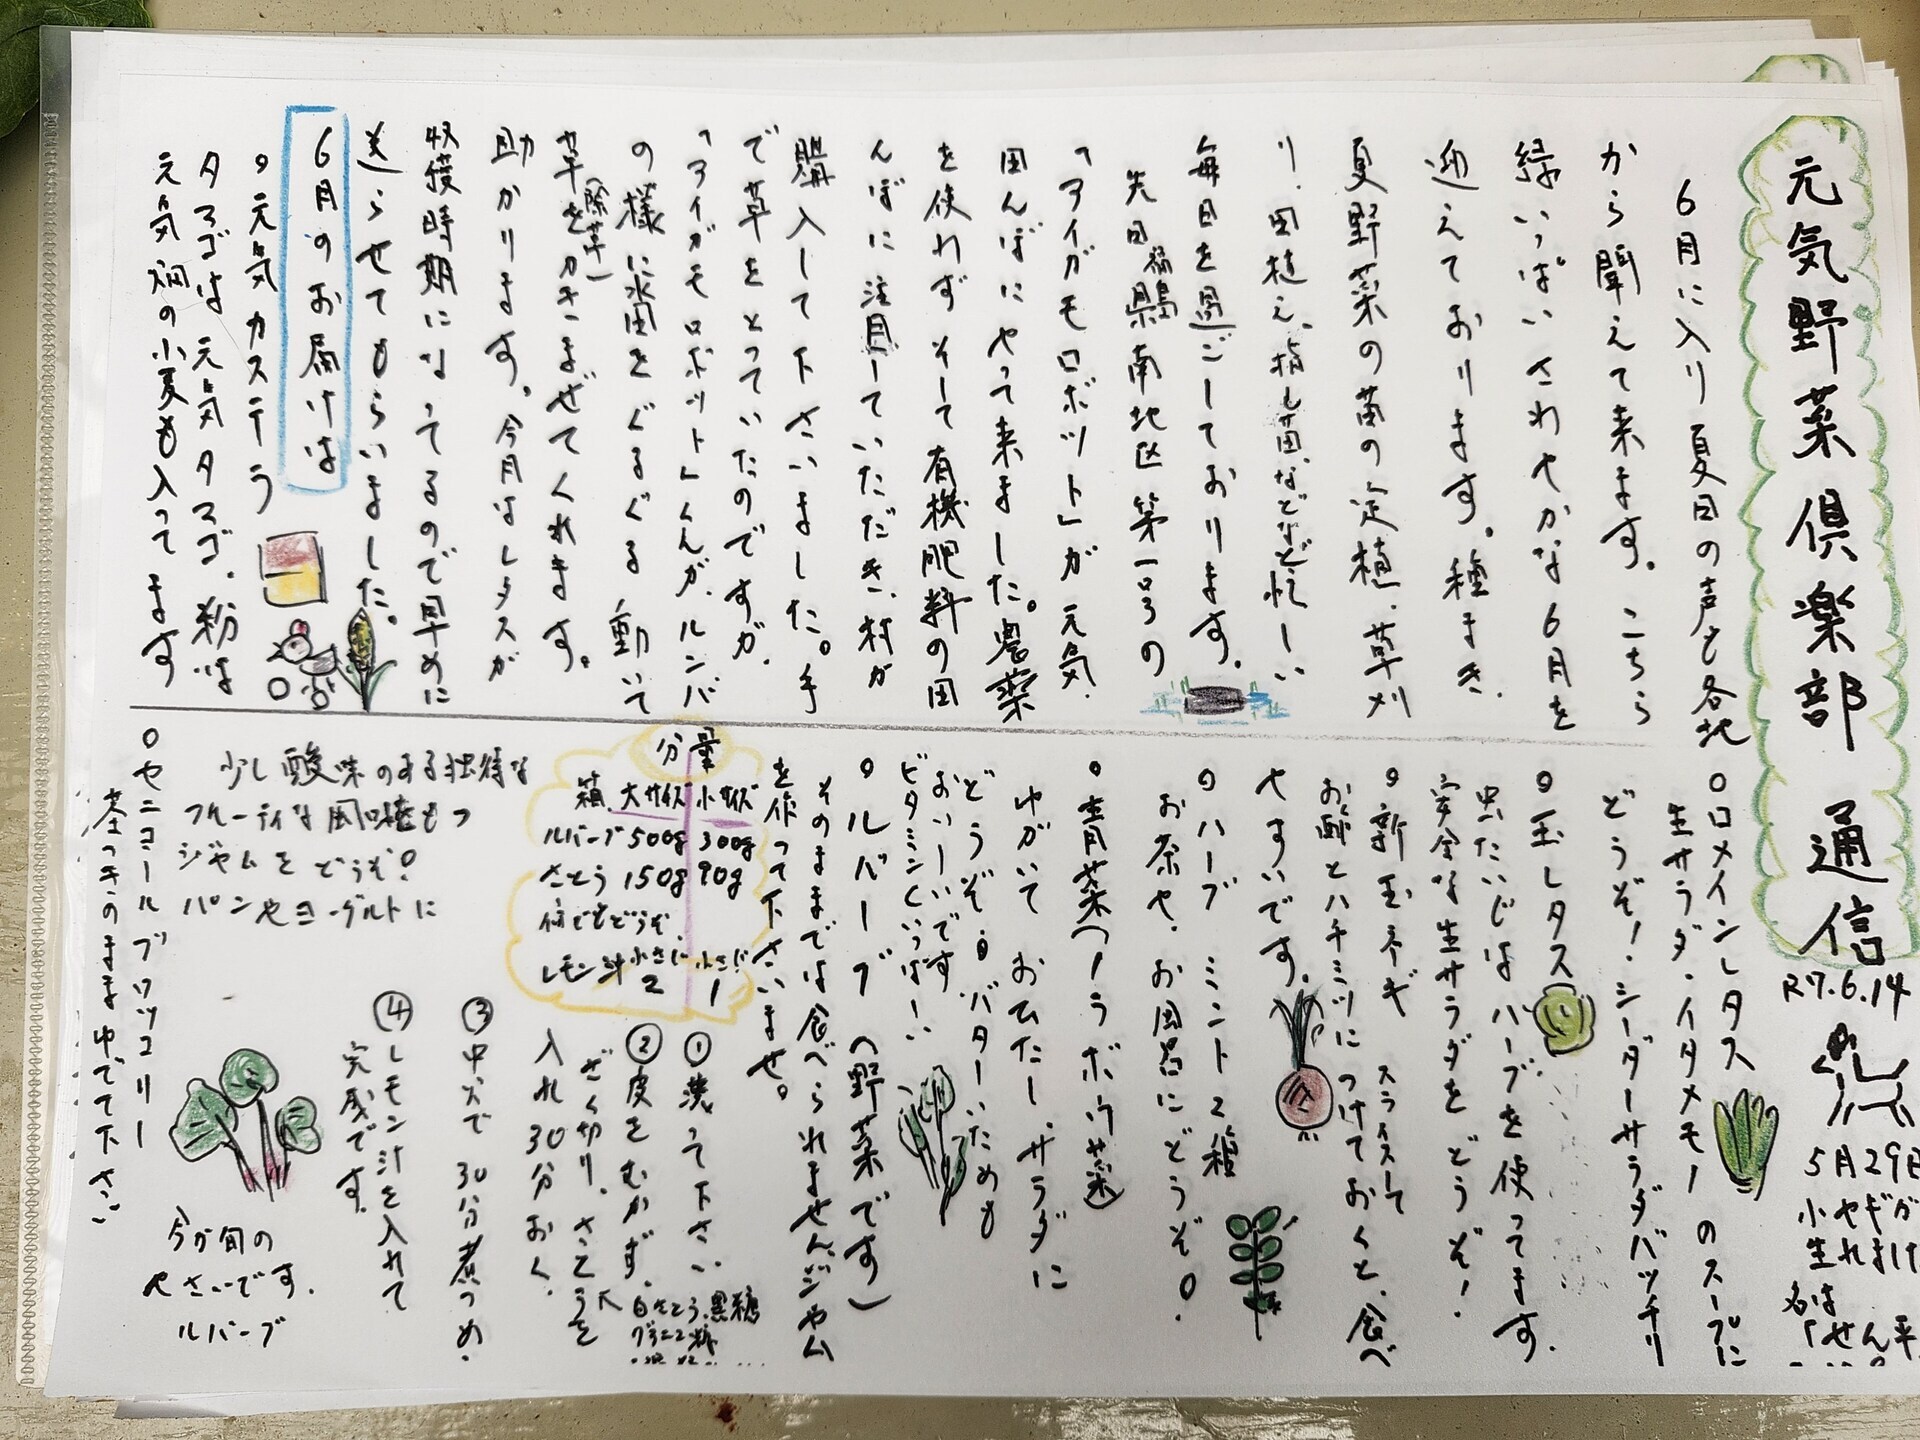 元気野菜倶楽部 通信
R7.6.14
5月29日
小ヤギが
生れまし
名は
「せん平
6月に入り夏日の声も各地
から聞えて来ます。こちら
緑いっぱいさわやかな6月を
迎えております。種まき、
夏野菜の苗の定植、草刈
り、田植え、指し苗などなど忙しい
毎日を過ごしております。
先日福島県南地区第一号の
「アイガモロボット」が元気
田んぼにやって来ました。農薬
を使わずそして有機肥料の田
んぼに注目していただき、村が
購入して下さいました。手
で草をとっていたのですが、
「アイガモロボット」くんが、ルンバ
の様に水田をぐるぐる動いて
草を(除草)かきまぜてくれます。
助かります。今月はレタスが
収穫時期になってるので早めに
送らせてもらいました。
6月のお届けは
○元気カステラ
タマゴは元気タマゴ、粉は
元気畑の小麦も入ってます
○ロメインレタス
生サラダ、イタメモノのスープに
どうぞ!シーザーサラダバッチリ
○玉レタス
虫たいじはハーブを使ってます。
安全な生サラダをどうぞ!
○新玉ネギ スライスして
お酢とハチミツにつけておくと、食べ
やすいです。
○ハーブ ミント2種
お茶や、お風呂にどうぞ!
○青菜(ノラボウ菜)
ゆがいておひたし、サラダに
どうぞ!バターいためも
おいしいです
ビタミンCいっぱーい
○ルバーブ (野菜です)
そのままでは食べられません。ジャム
を作って下さいませ。
分量
箱 大サイズ 小サイズ
ルバーブ 500g 300g
さとう 150g 90g
何でもどうぞ
レモン汁 小さじ2 小さじ1
①洗って下さい
②皮をむかず、
ざく切り、さとうを
入れ30分おく、
白さとう、黒糖
グラニュー糖
③中火で30分煮つめ、
④レモン汁を入れて
完成です。
少し酸味のある独特な
フルーティな風味をもつ
ジャムをどうぞ!
パンやヨーグルトに
今が旬の
やさいです。
ルバーブ
○セニョールブロッコリー
茎つきのままゆでて下さい